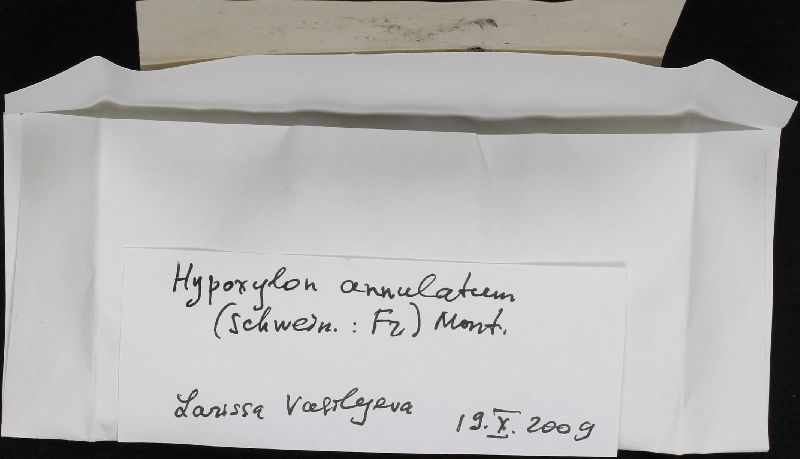 Hypoxylon annulatum
(Schwein. : Fr) Mont.
Larissa Vasilyeva 19.X.2009